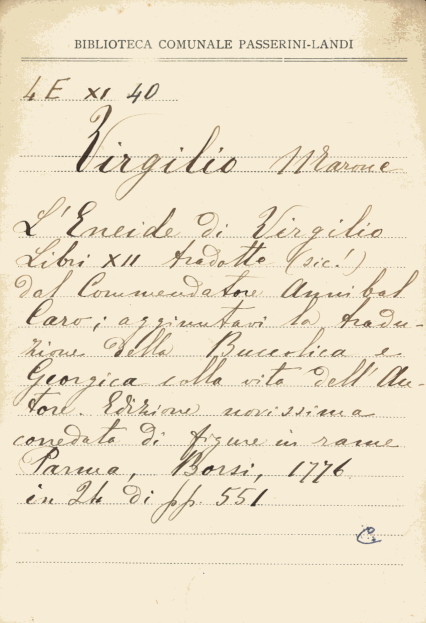 BIBLIOTECA COMUNALE PASSERINI-LANDI
4E XI 40
Virgilio Marone
L'Eneide di Virgilio
Libri XII tradotto (sic!)
dal Commendatore Annibal
Caro; aggiuntavi la tradu-
zione della Buccolica e
Georgica colla vita dell'Au-
tore. Edizione novissima
corredata di figure in rame
Parma, Borsi, 1776
in 24 di pp. 551